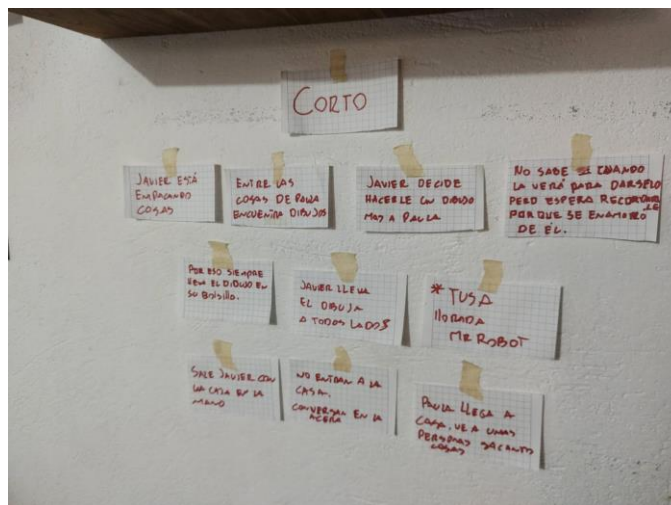 CORTO
JAVIER ESTÁ
EMPACANDO
COSAS
ENTRE LAS
COSAS DE PAULA
ENCUENTRA DIBUJOS
JAVIER DECIDE
HACERLE UN DIBUJO
MAS A PAULA
NO SABE SI CUANDO
LA VERÁ PARA DARSELO
PERO ESPERA RECORDARLE
PORQUE SE ENAMORO
DE ÉL.
POR ESO SIEMPRE
EL DIBUJO EN
SU BOLSILLO.
JAVIER LLEVA
EL DIBUJO
A TODOS LADOS
* TUSA
llORADA
MR ROBOT
SALE JAVIER CON
LA CAJA EN LA
MANO
NO ENTRAN A LA
CASA.
CONVERSAN EN LA
ACERA
PAULA LLEGA A
CASA, VE A UNAS
PERSONAS SACANDO
COSAS